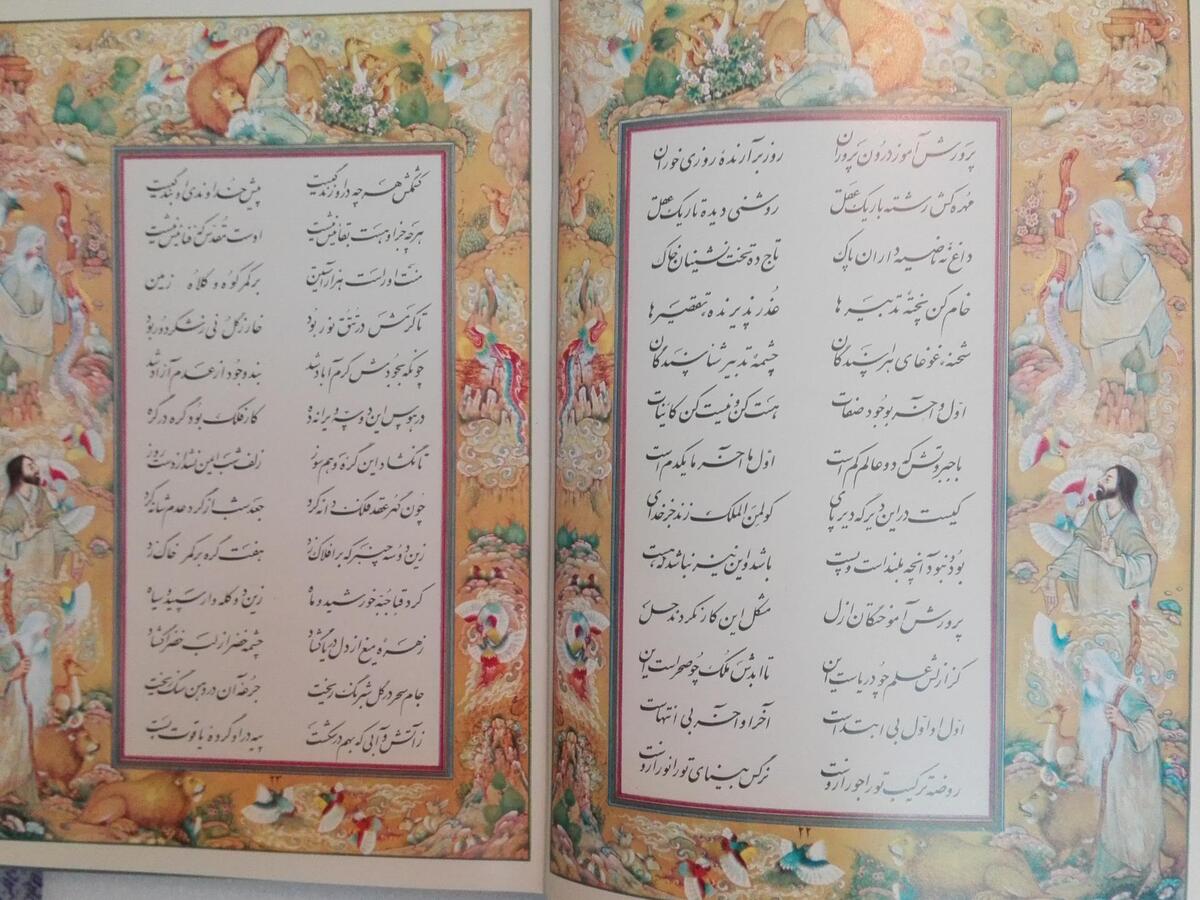 پرورش آموز درون پروران روز برآرندهٔ روزی خوران
مهره کش رشته باریک عقل روشنی دیدهٔ تاریک عقل
داغ نه ناصیه داران پاک تاج ده تخت نشینان خاک
خام کن پختهٔ تدبیرها عذر پذیرندهٔ تقصیرها
شحنهٔ غوغای هراسندگان چشمهٔ تدبیر شناسندگان
اول و آخر بوجود صفات هست کن و نیست کن کاینات
با جبروتش که دو عالم کم است اول ما آخر ما یکدم است
کیست درین دیرگه دیر پای کو لمن الملک زند جز خدای
بود نبود آنچه بلند است و پست باشد و این نیز نباشد که هست
پرورش آموختگان ازل مشکل این کار نکردند حل
کز ازلش علم چو دریاست این تا ابدش ملک چو صحراست این
اول او اول بی ابتداست آخر او آخر بی انتهاست
روضه ترکیب تو را حور ازوست نرگس بینای تو را نور ازوست
۲۲
کشمکش هر چه در او زندگیست پیش خداوندی او بندگیست
هر چه جز او هست بقائیش نیست اوست مقدس که فنائیش نیست
منت او راست هزار آستین بر کمر کوه و کلاه زمین
تا کرمش در تتق نور بود خار ز گل نی ز شکر دور بود
چون که بجودش کرم آباد شد بند وجود از عدم آزاد شد
در هوس این دو سه ویرانه ده کار فلک بود گره در گره
تا نگشاد این گره وهم سوز زلف شب ایمن نشد از دست روز
چون گهر عقد فلک دانه کرد جعد شب از گرد عدم شانه کرد
زین دو سه چنبر که بر افلاک زد هفت گره بر کمر خاک زد
کرد قبا جبهٔ خورشید و ماه زین دو کله وار سپید و سیاه
زهرهٔ میغ از دل دریا گشاد چشمهٔ خضر از لب خضرا گشاد
جام سحر در گل شبرنگ ریخت جرعهٔ آن در دهن سنگ ریخت
زآتش و آبی که بهم در شکست پیه در و گردهٔ یاقوت بست
۲۳